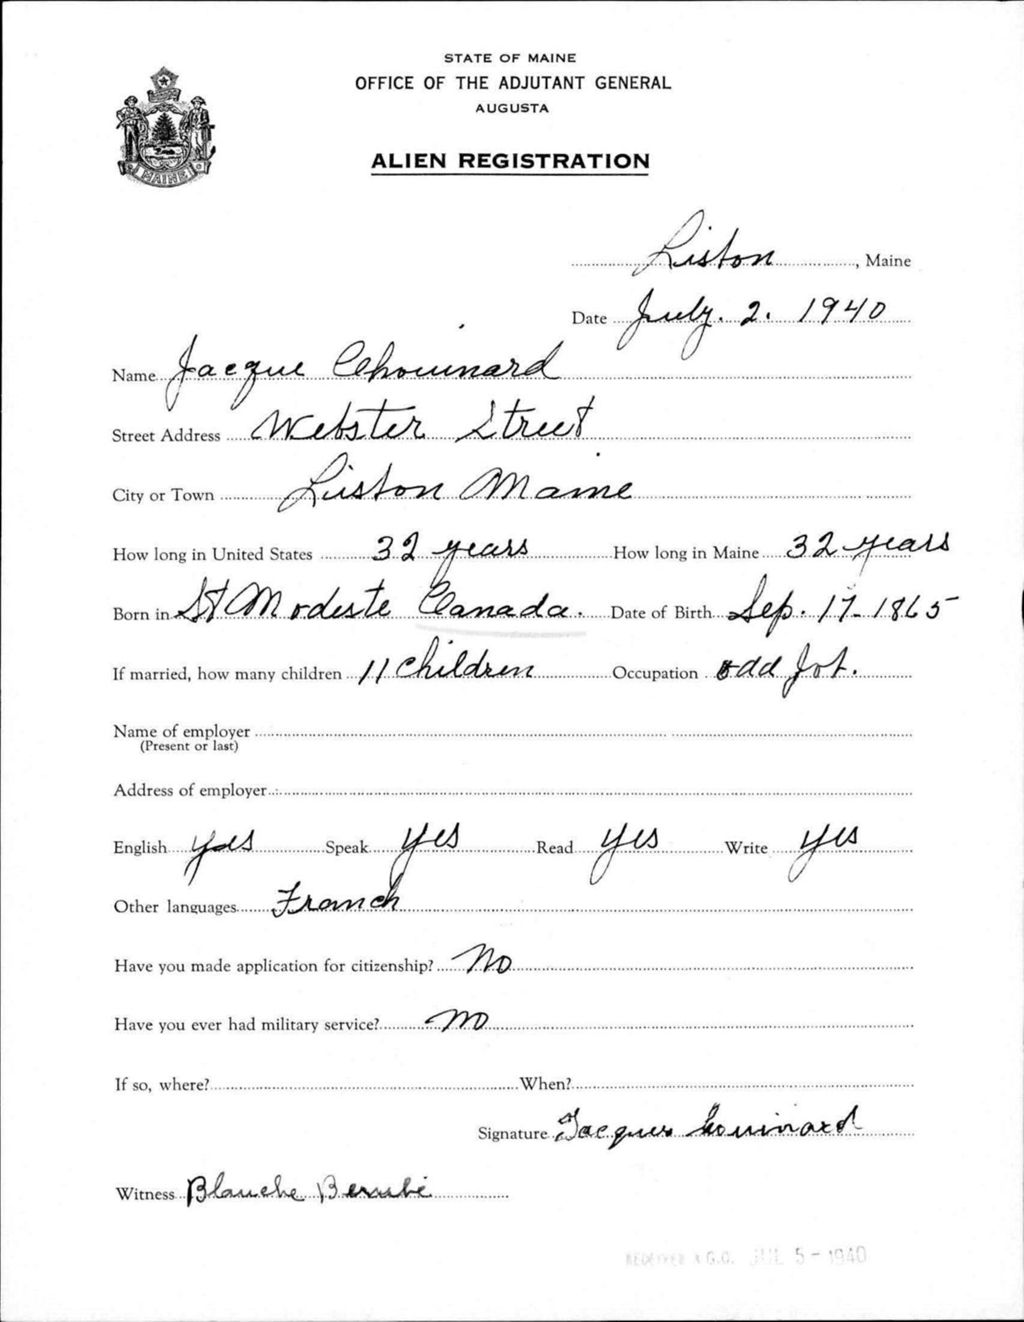 STATE OF MAINE
OFFICE OF THE ADJUTANT GENERAL
AUGUSTA
ALIEN REGISTRATION
MAINE
Liston, Maine
Date July. 2. 1940
Name Jacque Chouinard
Street Address Webster Street
City or Town Liston Maine
How long in United States 32 years How long in Maine 32 years
Born in St Modeste Canada. Date of Birth Sep. 17- 1865
If married, how many children 11 children Occupation odd Job.
Name of employer
(Present or last)
Address of employer
English yes Speak yes Read yes Write yes
Other languages Franch
Have you made application for citizenship? No
Have you ever had military service? no
If so, where? When?
Signature Jacques
Witness Blanche Berubé
RECEIVED A.G.O. JUL 5 - 1940